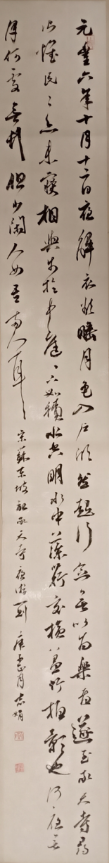 元豐六年十月十二日夜解衣欲睡月色入戶欣然起行念無與為樂者遂至承天寺尋
張懷民〻亦未寢相與步於中庭〻下如積水空明水中藻荇交橫蓋竹柏影也何夜無
月何處無竹柏但少閑人如吾兩人耳 宋蘇東坡記承天寺夜遊 庚 月